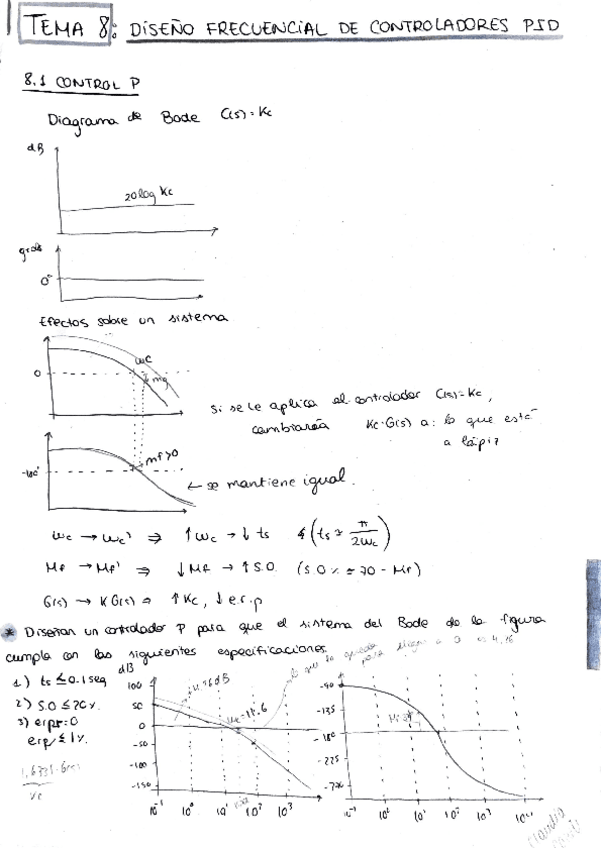 TEMA 8: DISEÑO FRECUENCIAL DE CONTROLADORES PID
8.1 CONTROL P
Diagrama de Bode C(s)=Kc
dB
20 log Kc
grados
0°
Efectos sobre un sistema
wc
0
mg
Si se le aplica el controlador C(s)=Kc,
cambiará Kc·G(s) a: lo que está
a lápiz
mf>0
-180°
← se mantiene igual.
wc → wc' ⇒ ↑wc → ↓ ts (ts ≈ π/2wc)
Mf → Mf' ⇒ ↓Mf → ↑S.O. (S.O % ≈ 70 - Mf)
G(s) → K G(s) ⇒ ↑Kc, ↓e.r.p
* Diseñar un controlador P para que el sistema del Bode de la figura
cumpla con las siguientes especificaciones
1) ts ≤ 0.1 seg
2) S.O ≤ 20 %.
3) erps=0
erp ≤ 1%.
dB
100
50
0
-50
-100
-150
10⁻¹ 10⁰ 10¹ 10² 10³
-90
-135
-180
-225
10⁻¹ 10⁰ 10¹ 10² 10³ 10⁴